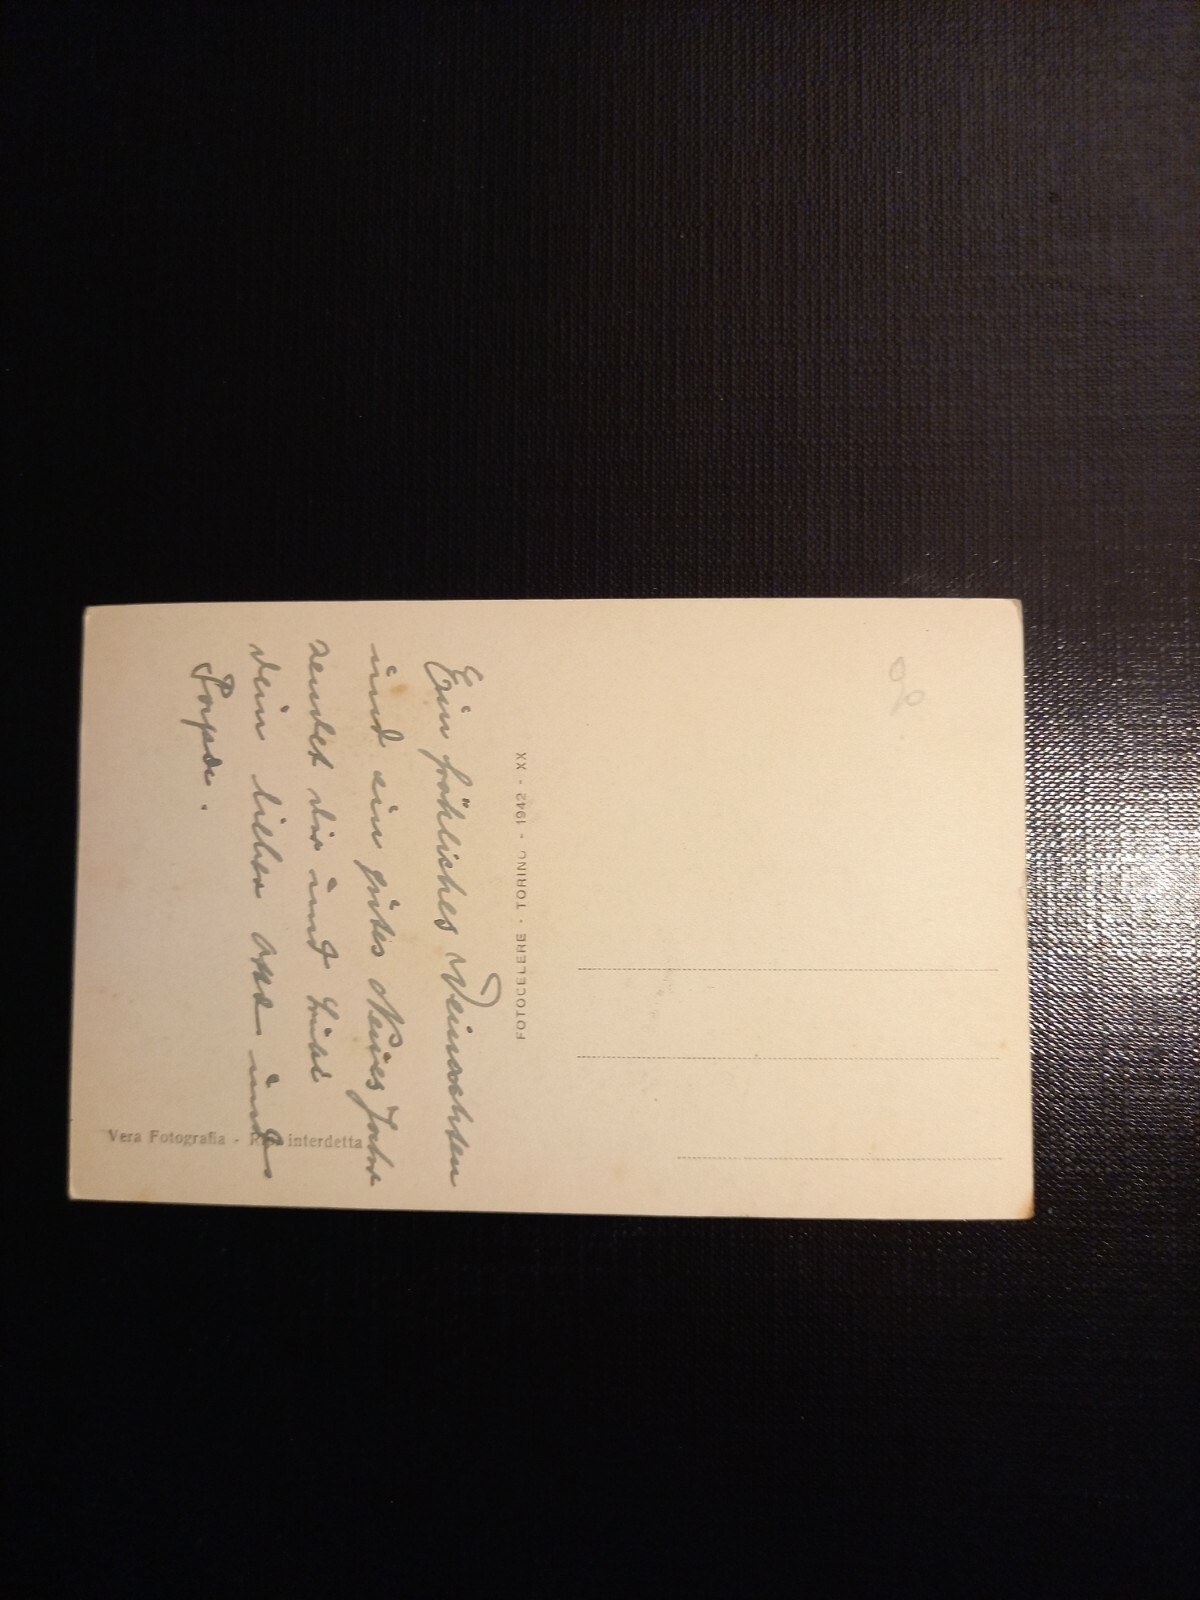 Ein fröhliches Weinachten
und ein gutes Neues Jahr
sendet dir und
dein lieber und
Papa.
Vera Fotografia - interdetta
FOTOCELERE - TORINO - 1942 - XX